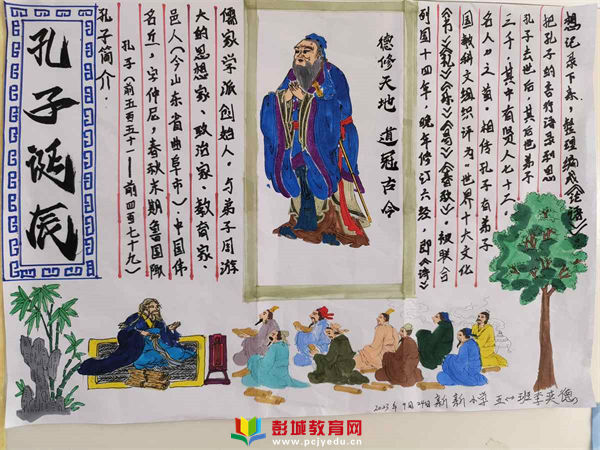 孔子诞辰
孔子简介:
孔子(前五百五十一——前四百七十九)
名丘,字仲尼,春秋末期鲁国陬
邑人(今山东省曲阜市)。中国伟
大的思想家、政治家、教育家、
儒家学派创始人。与弟子周游
列国十四年,晚年修订六经,即《诗》
《书》《礼》《乐》《易》《春秋》。被联合
国教科文组织评为“世界十大文化
名人”之首。相传孔子有弟子
三千,其中有贤人七十二。
孔子去世后,其后世弟子
把孔子的言行语录和思
想记录下来,整理编成《论语》。
德修天地 道冠古今
2023年9月24日 新新小学 五(1)班李奕
彭城教育网
www.pcjyedu.cn